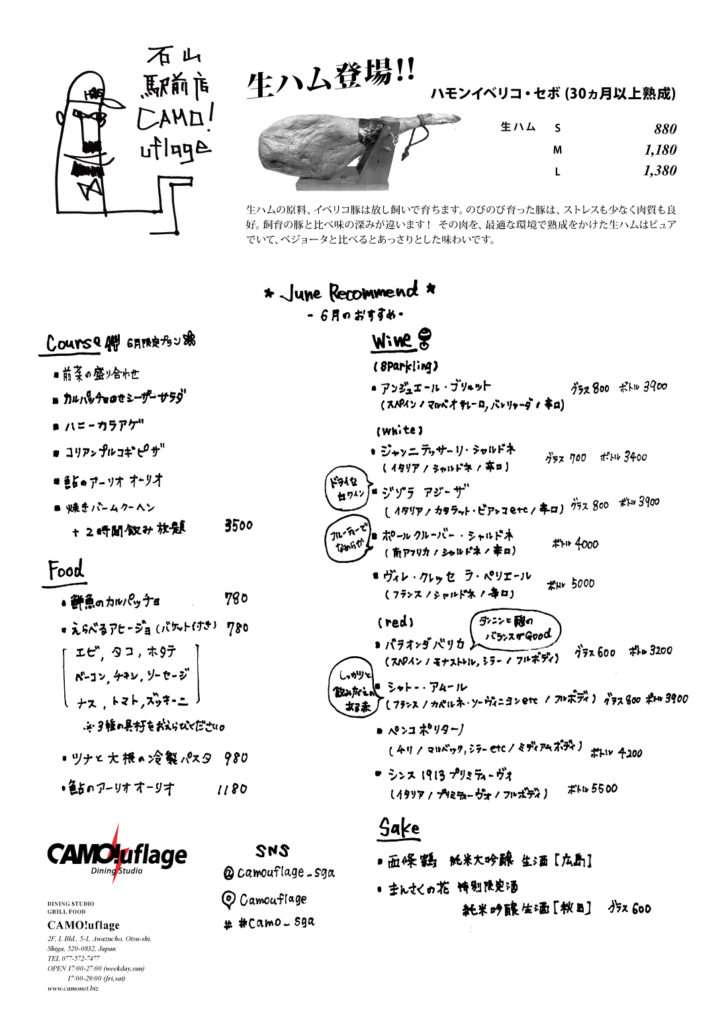 石山
駅前店
CAMO!
uflage
生ハム登場!!
ハモンイベリコ・セボ (30ヵ月以上熟成)
生ハム S 880
M 1,180
L 1,380
生ハムの原料、イベリコ豚は放し飼いで育ちます。のびのび育った豚は、ストレスも少なく肉質も良
好。飼育の豚と比べ味の深みが違います! その肉を、最適な環境で熟成をかけた生ハムはピュア
でいて、ベジョータと比べるとあっさりとした味わいです。
* June Recommend *
- 6月のおすすめ -
Course 6月限定プラン
■ 前菜の盛り合わせ
■ カルパッチョのせシーザーサラダ
■ ハニーカラアゲ
■ コリアンプルコギピザ
■ 鮎のアーリオ オーリオ
■ 焼きバームクーヘン
+ 2時間飲み放題 3500
Food
• 鮮魚のカルパッチョ 780
• えらべるアヒージョ (バケット付き) 780
エビ, タコ, ホタテ
ベーコン, チキン, ソーセージ
ナス, トマト, ズッキーニ
※3種の具材をおえらびください。
• ツナと大根の冷製パスタ 980
• 鮎のアーリオ オーリオ 1180
Wine
(Sparkling)
■ アンジュエール・ブリュット グラス 800 ボトル 3900
(スペイン / マカベオ チャレーロ, パレリャーダ / 辛口)
(white)
■ ジャンニテッサーリ・シャルドネ グラス 700 ボトル 3400
(イタリア / シャルドネ / 辛口)
ドライな
白ワイン
■ ジゾラ アジーザ グラス 800 ボトル 3900
(イタリア / カタラット・ビアンコ etc / 辛口)
フルーティーで
なめらか
■ ポールクルーバー・シャルドネ ボトル 4000
(南アフリカ / シャルドネ / 辛口)
■ ヴィレ・クレッセ ラ・ペリエール ボトル 5000
(フランス / シャルドネ / 辛口)
(red)
タンニンと酸の
バランスがGood
■ パラオンダ バリカ グラス 600 ボトル 3200
(スペイン / モナストレル, シラー / フルボディ)
しっかりと
飲みごたえの
ある赤
■ シャトー・アムール
(フランス / カベルネ・ソーヴィニヨン etc / フルボディ) グラス 800 ボトル 3900
■ ペンコ ポリターノ
(チリ / マルベック, シラー etc / ミディアムボディ) ボトル 4200
■ シンス 1913 プリミティーヴォ
(イタリア / プリミティーヴォ / フルボディ) ボトル 5500
Sake
• 西條鶴 純米大吟醸 生酒 [広島]
• まんさくの花 特別限定酒
純米吟醸 生酒 [秋田] グラス 600
CAMO!uflage
Dining Studio
SNS
@camouflage_sga
Camouflage
# #camo_sga
DINING STUDIO
GRILL FOOD
CAMO!uflage
2F, I. Bld., 5-1, Awazucho, Otsu-shi,
Shiga, 520-0832, Japan
TEL 077-572-7477
OPEN 17:00-27:00 (weekday,sun)
17:00-29:00 (fri,sat)
www.camonet.biz